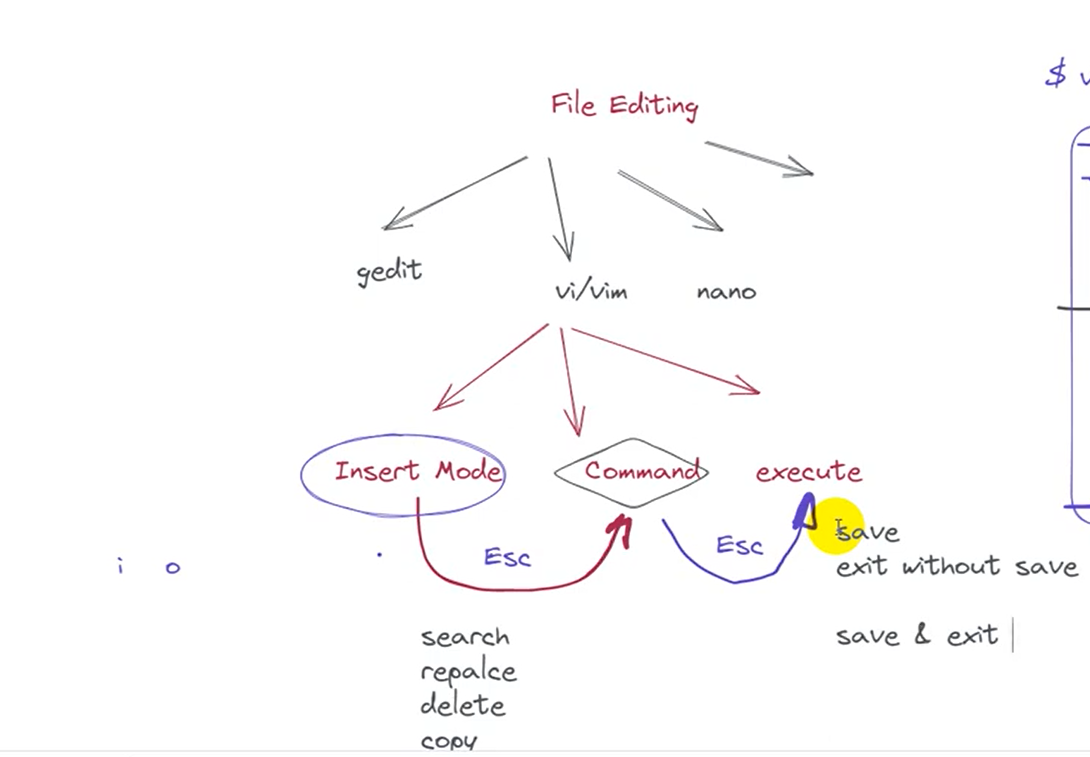 File Editing
$ v
gedit
vi/vim
nano
Insert Mode
Command
execute
Esc
Esc
save
exit without save
i o
save & exit
search
repalce
delete
copy